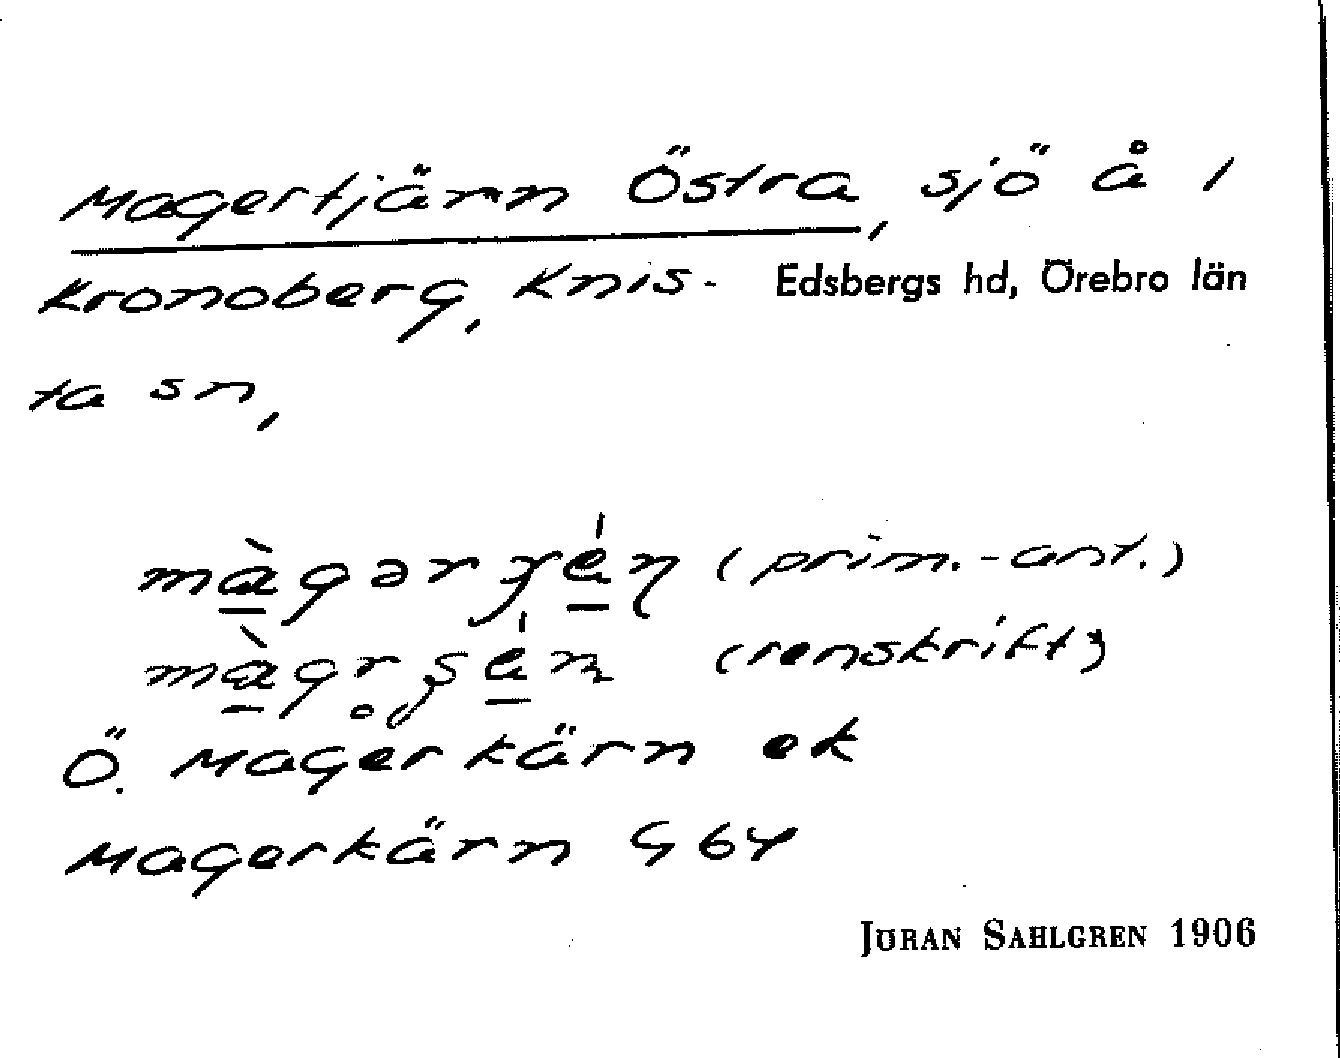 Magertjärn Östra, sjö å 1
Kronoberg, Knis- Edsbergs hd, Örebro län
ta sn,
(prim.-ant.)
(renskrift)
Ö. Magerkärn ek
Magerkärn G 64
JÖRAN SAHLGREN 1906